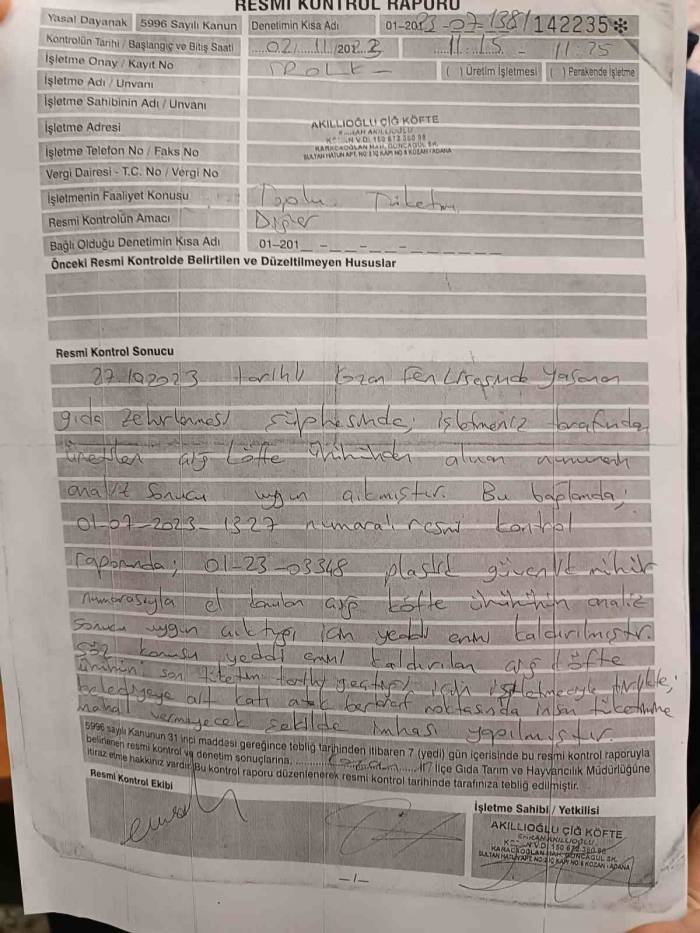 RESMİ KONTROL RAPORU
Yasal Dayanak 5996 Sayılı Kanun Denetimin Kısa Adı 01-201 23-07-1381 142235✻
Kontrolün Tarihi / Başlangıç ve Bitiş Saati 02/11/2023 11:15 - 11:25
İşletme Onay / Kayıt No ( ) Üretim İşletmesi ( ) Perakende İşletme
İşletme Adı / Unvanı
İşletme Sahibinin Adı / Unvanı
İşletme Adresi AKILLIOĞLU ÇİĞ KÖFTE
İşletme Telefon No / Faks No KARACAOĞLAN MAH. GÖNCAGÜL SK.
SULTAN HATUN APT. NO:2 İÇ KAPI NO:8 KOZAN/ADANA
Vergi Dairesi - T.C. No / Vergi No
İşletmenin Faaliyet Konusu Toplu Tüketim
Resmi Kontrolün Amacı Diğer
Bağlı Olduğu Denetimin Kısa Adı 01-201_ - _ - _
Önceki Resmi Kontrolde Belirtilen ve Düzeltilmeyen Hususlar
Resmi Kontrol Sonucu
27.10.2023 tarihli Kozan Fen Lisesinde Yaşanan
gıda zehirlenmesi şüphesinde; işletmeniz tarafından
üretilen çiğ köfte ürününden alınan numunenin
analiz sonucu uygun çıkmıştır. Bu bağlamda;
01-07-2023-1327 numaralı resmi kontrol
raporunda; 01-23-03348 plastik güvenlik mühür
numarasıyla el konulan çiğ köfte ürününün analiz
sonucu uygun çıktığı için yeddi emin kaldırılmıştır.
Söz konusu yeddi emini kaldırılan çiğ köfte
ürünün son tüketim tarihi geçtiği için işletmeciyle birlikte;
belediyeye ait katı atık bertaraf noktasında insan tüketimine
mahal vermeyecek şekilde imhası yapılmıştır.
5996 sayılı Kanunun 31 inci maddesi gereğince tebliğ tarihinden itibaren 7 (yedi) gün içerisinde bu resmi kontrol raporuyla
belirlenen resmi kontrol ve denetim sonuçlarına, Kozan İl/ İlçe Gıda Tarım ve Hayvancılık Müdürlüğüne
itiraz etme hakkınız vardır. Bu kontrol raporu düzenlenerek resmi kontrol tarihinde tarafınıza tebliğ edilmiştir.
Resmi Kontrol Ekibi
İşletme Sahibi / Yetkilisi
AKILLIOĞLU ÇİĞ KÖFTE
KARACAOĞLAN MAH. GÖNCAGÜL SK.
SULTAN HATUN APT. NO:2 İÇ KAPI NO:8 KOZAN/ADANA
-1-